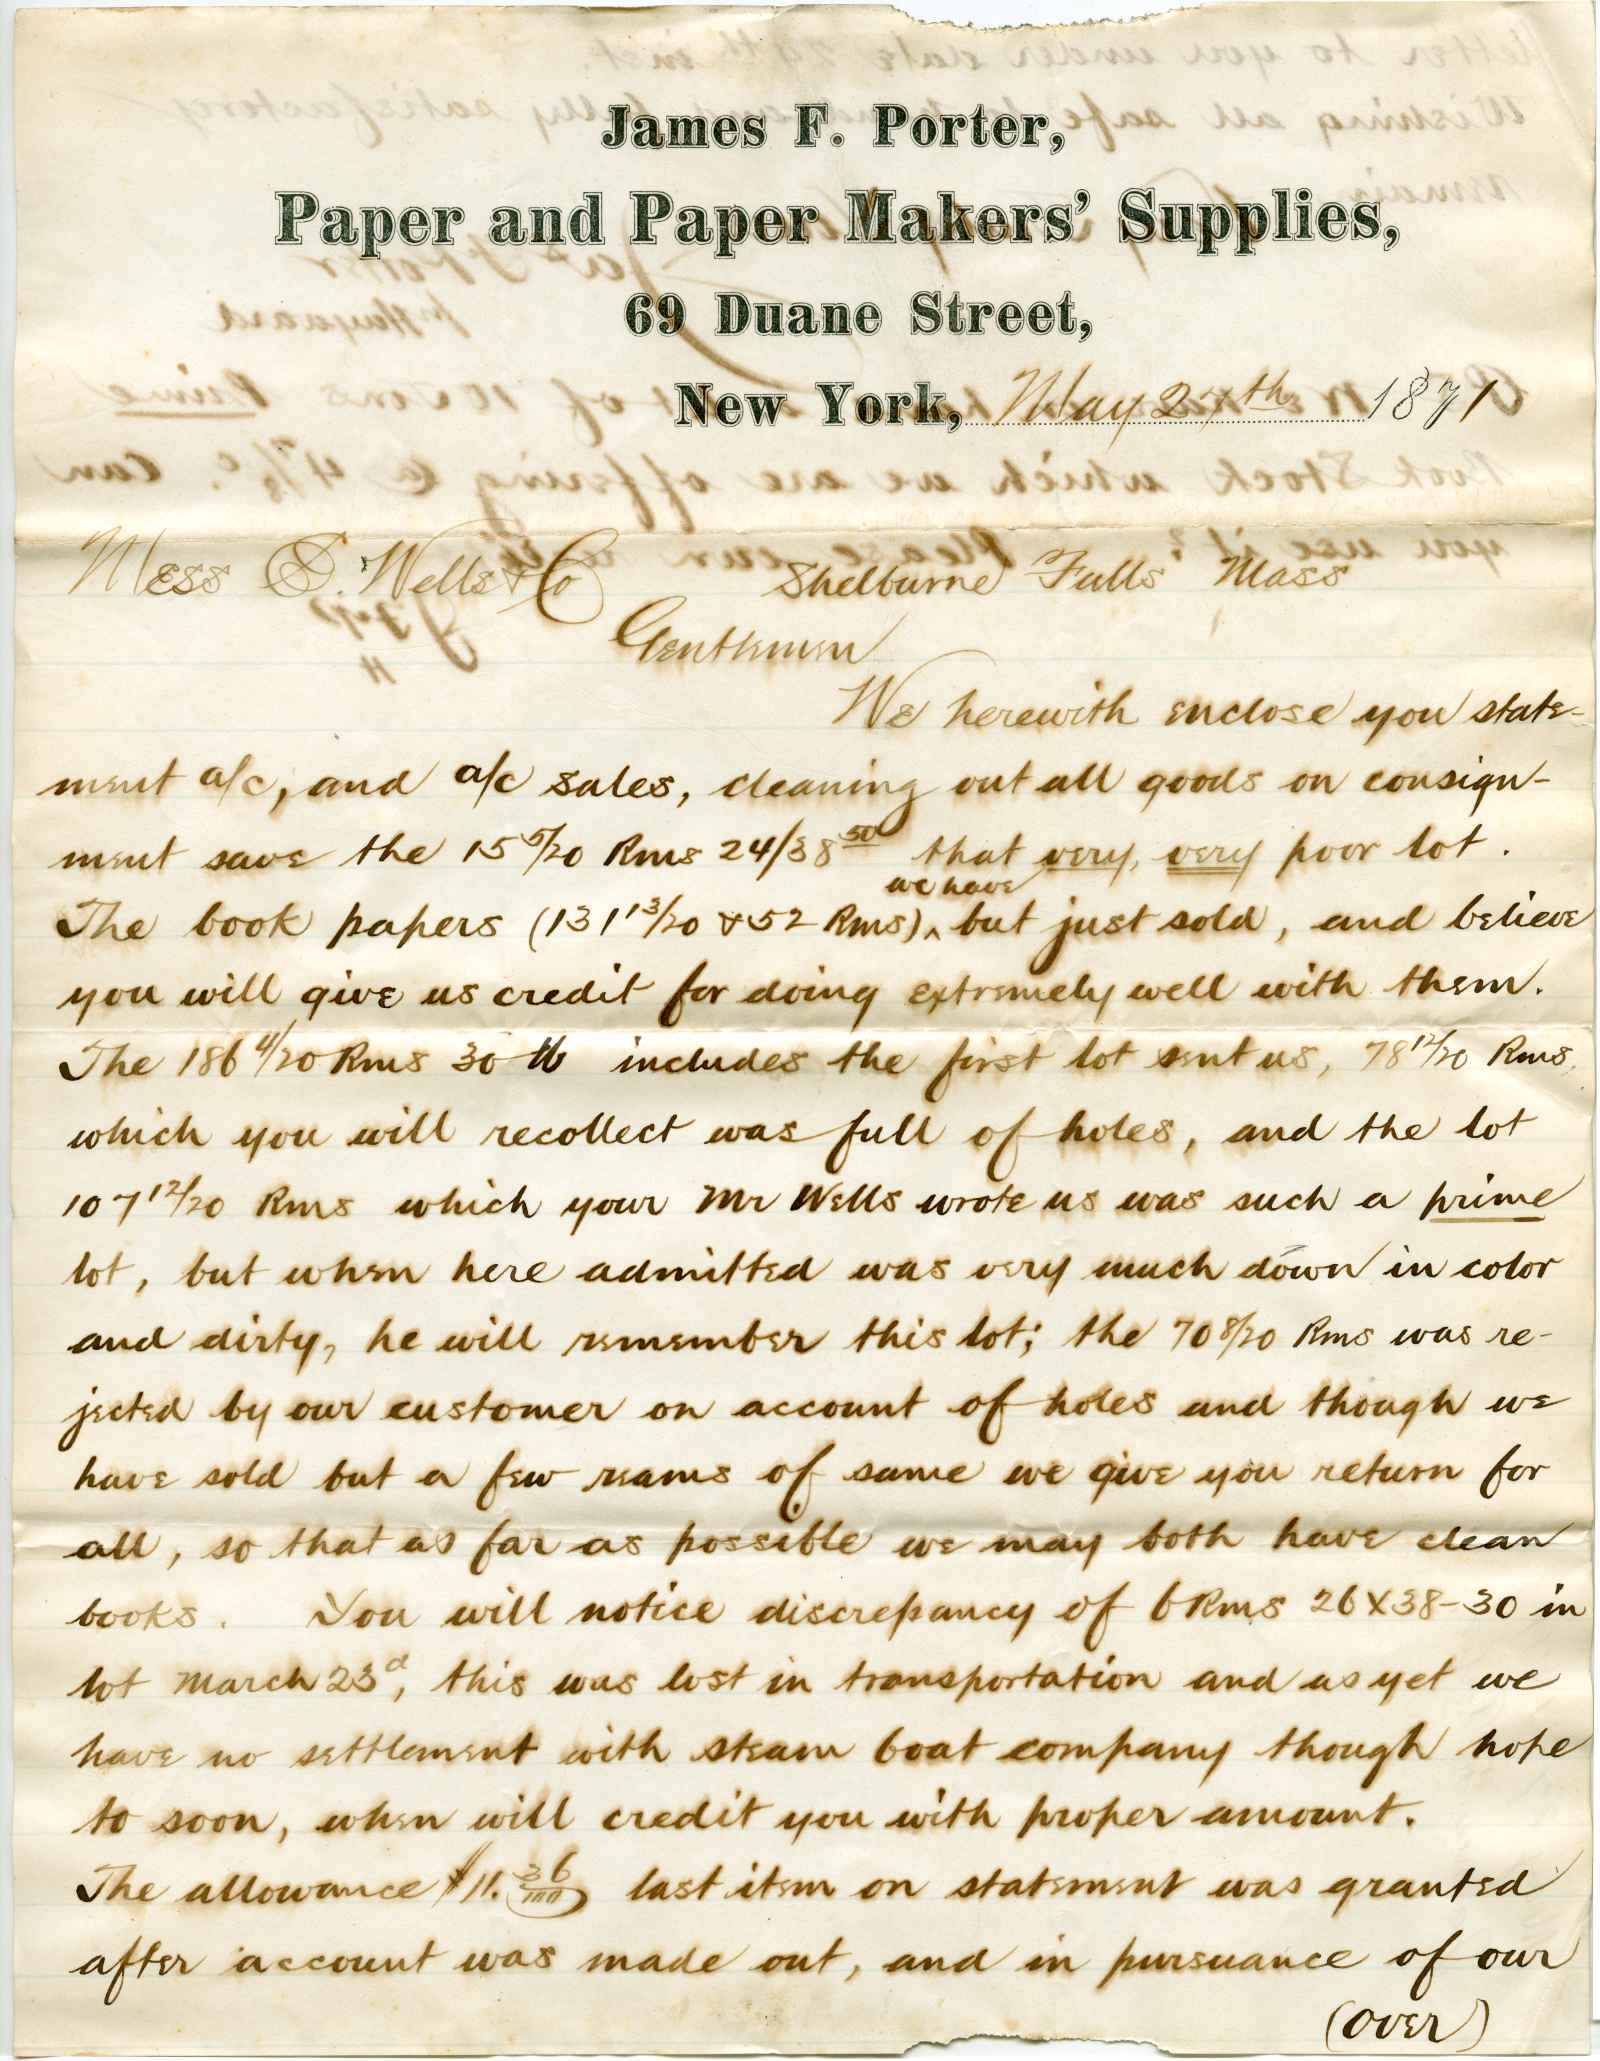 James F. Porter,
Paper and Paper Makers' Supplies,
69 Duane Street,
New York, May 27th 1871
Mess S. Wells & Co Shelburne Falls Mass
Gentlemen
We herewith enclose you state-
ment a/c, and a/c sales, cleaning out all goods on consign-
ment save the 15 5/20 Rms 24/38 50 that very, very poor lot.
The book papers (131 13/20 & 52 Rms) ^ we have but just sold, and believe
you will give us credit for doing extremely well with them.
The 186 4/20 Rms 30 lb includes the first lot sent us, 78 12/20 Rms,
which you will recollect was full of holes, and the lot
107 12/20 Rms which your Mr Wells wrote us was such a prime
lot, but when here admitted was very much down in color
and dirty, he will remember this lot; the 70 8/20 Rms was re-
jected by our customer on account of holes and though we
have sold but a few reams of same we give you return for
all, so that as far as possible we may both have clean
books. You will notice discrepancy of 6 Rms 26 X 38-30 in
lot March 23d, this was lost in transportation and as yet we
have no settlement with steam boat company though hope
to soon, when will credit you with proper amount.
The allowance $11. 36/100 last item on statement was granted
after account was made out, and in pursuance of our
(over)